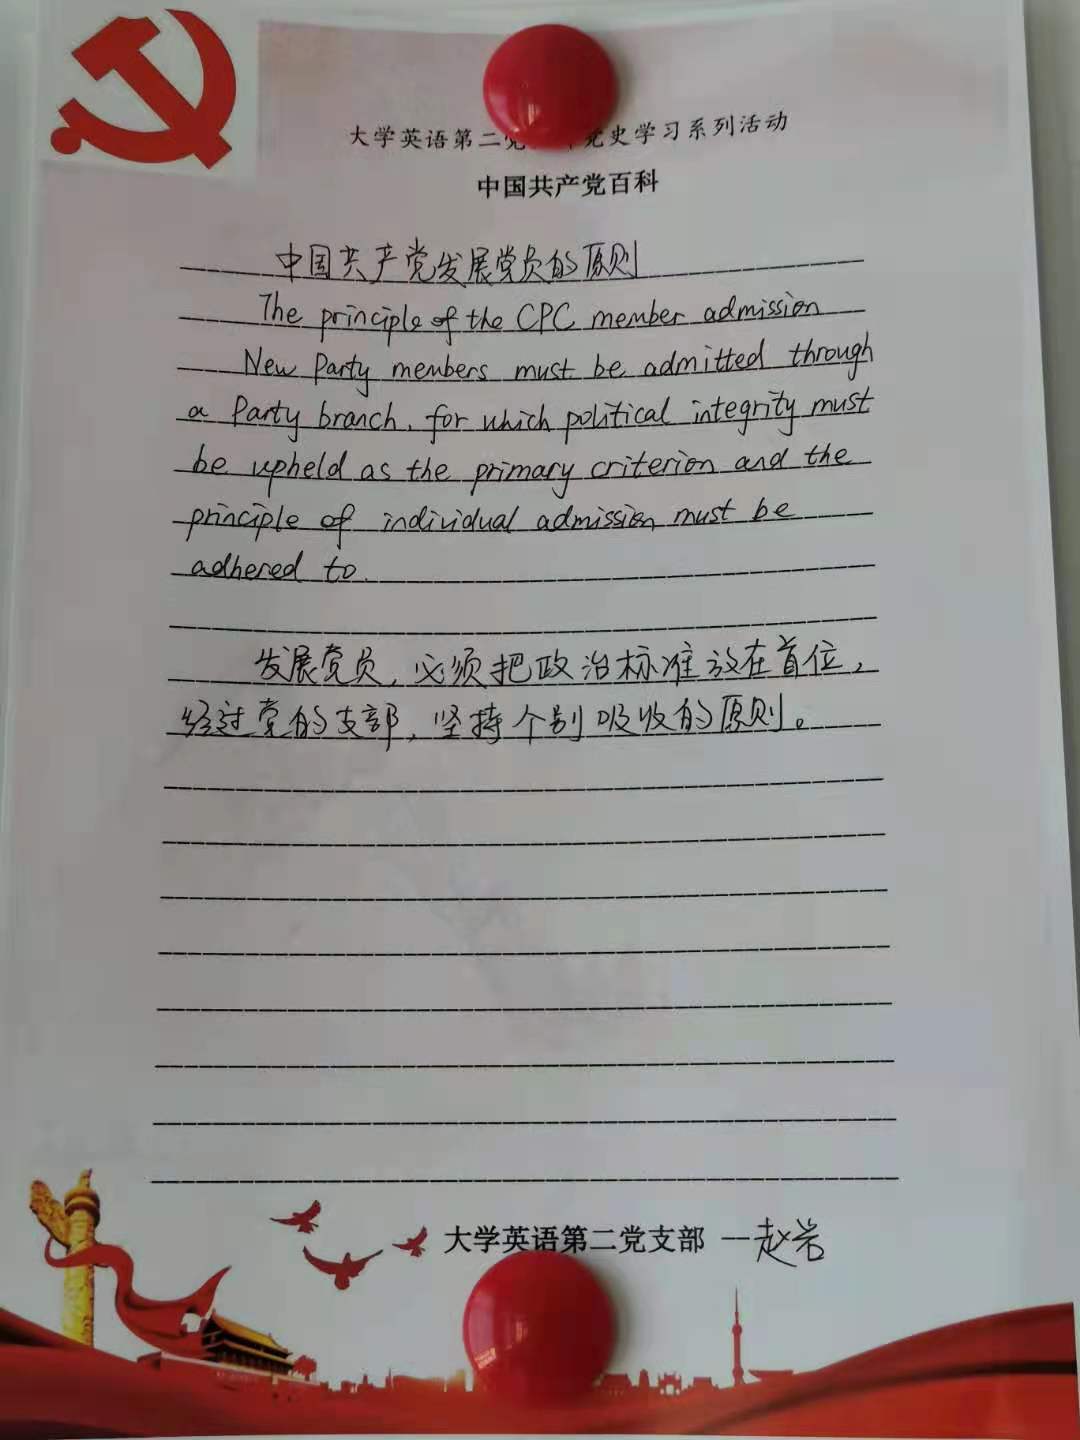 大学英语第二党 党史学习系列活动
中国共产党百科
中国共产党发展党员的原则
The principle of the CPC member admission
New Party members must be admitted through
a Party branch, for which political integrity must
be upheld as the primary criterion and the
principle of individual admission must be
adhered to.
发展党员，必须把政治标准放在首位，
经过党的支部，坚持个别吸收的原则。
大学英语第二党支部 —赵岩